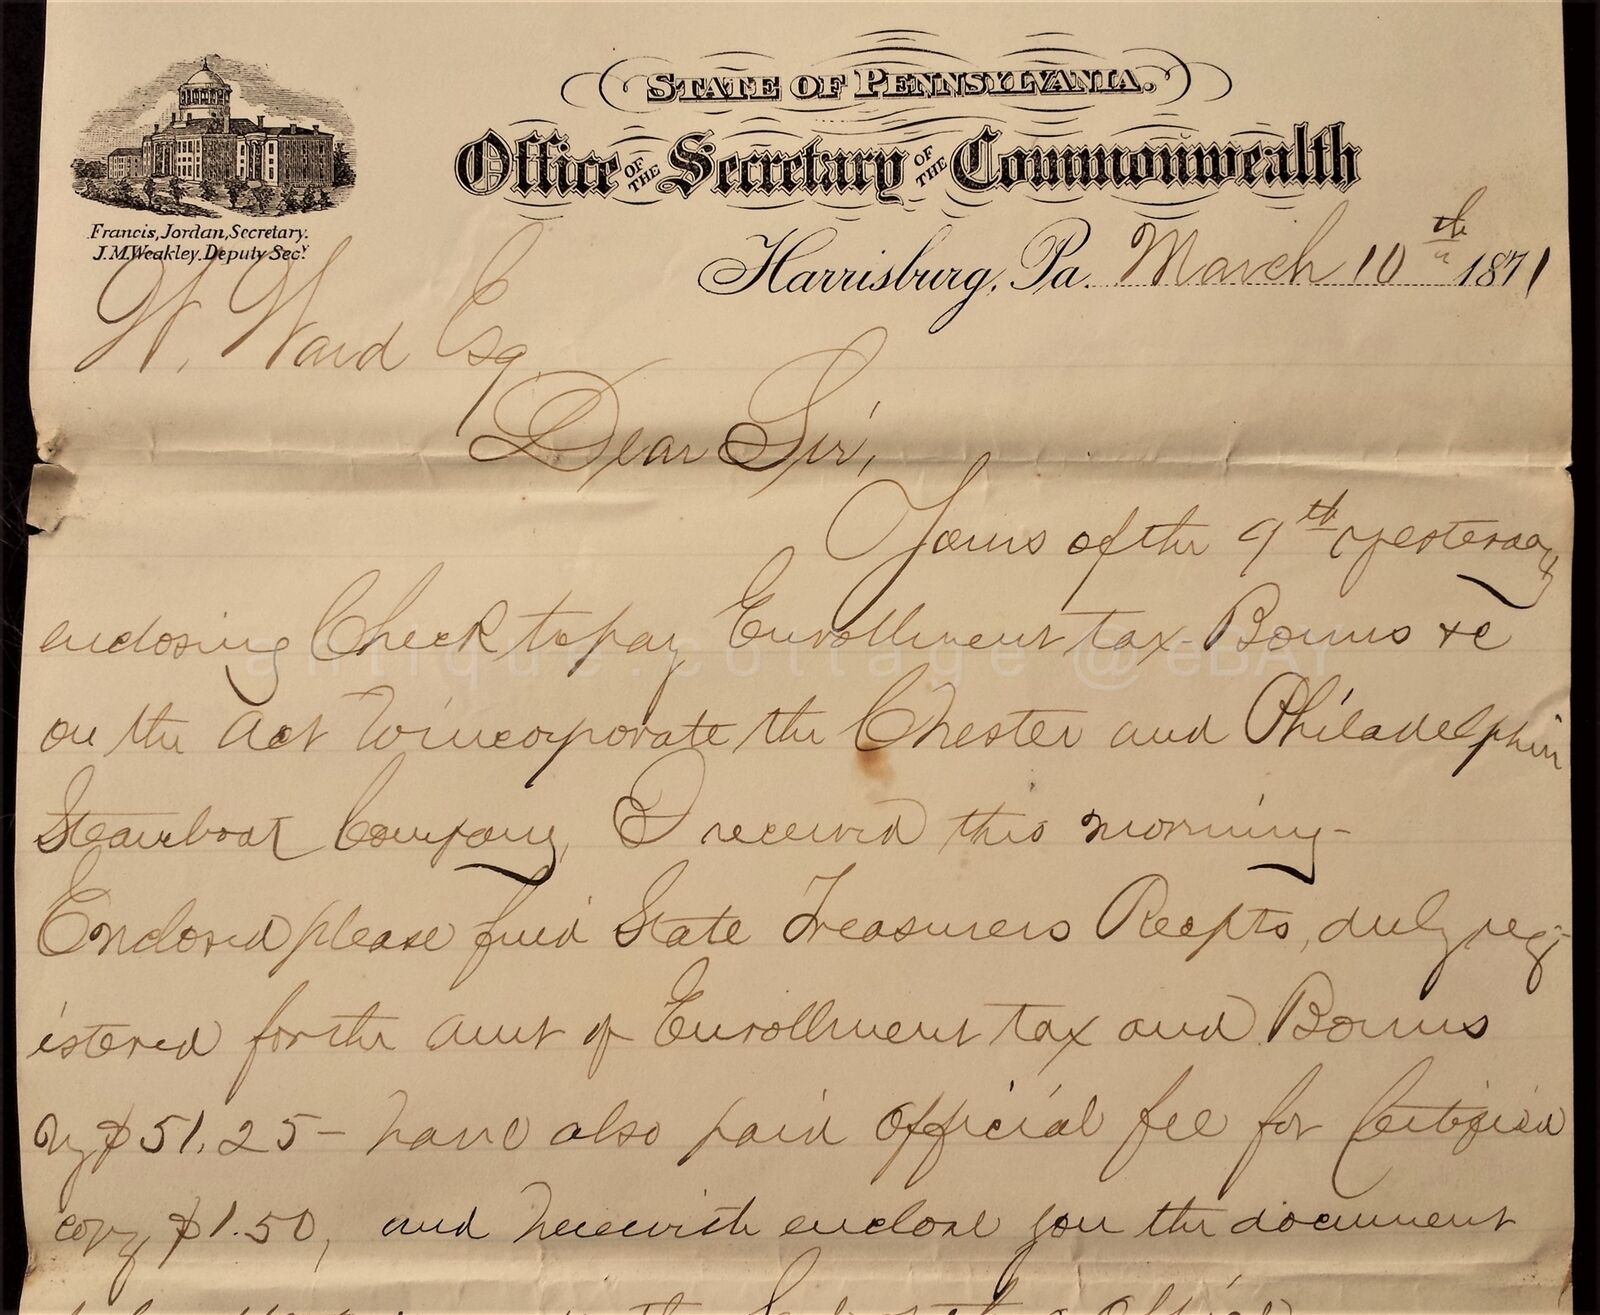 STATE OF PENNSYLVANIA.
Office OF THE Secretary OF THE Commonwealth
Francis, Jordan, Secretary.
J. M. Weakley. Deputy Secy.
Harrisburg, Pa. March 10th 1871
W. Ward Esq
Dear Sir,
Yours of the 9th yesterday
enclosing Check to pay Enrollment tax Bonus &c
antique.cottage @eBAY
on the Act to incorporate the Chester and Philadelphia
Steamboat Company, I received this morning-
Enclosed please find State Treasurers Recpts, duly reg-
istered for the amt of Enrollment tax and Bonus
$51.25 - have also paid official fee for Certified
copy $1.50, and herewith enclose you the document